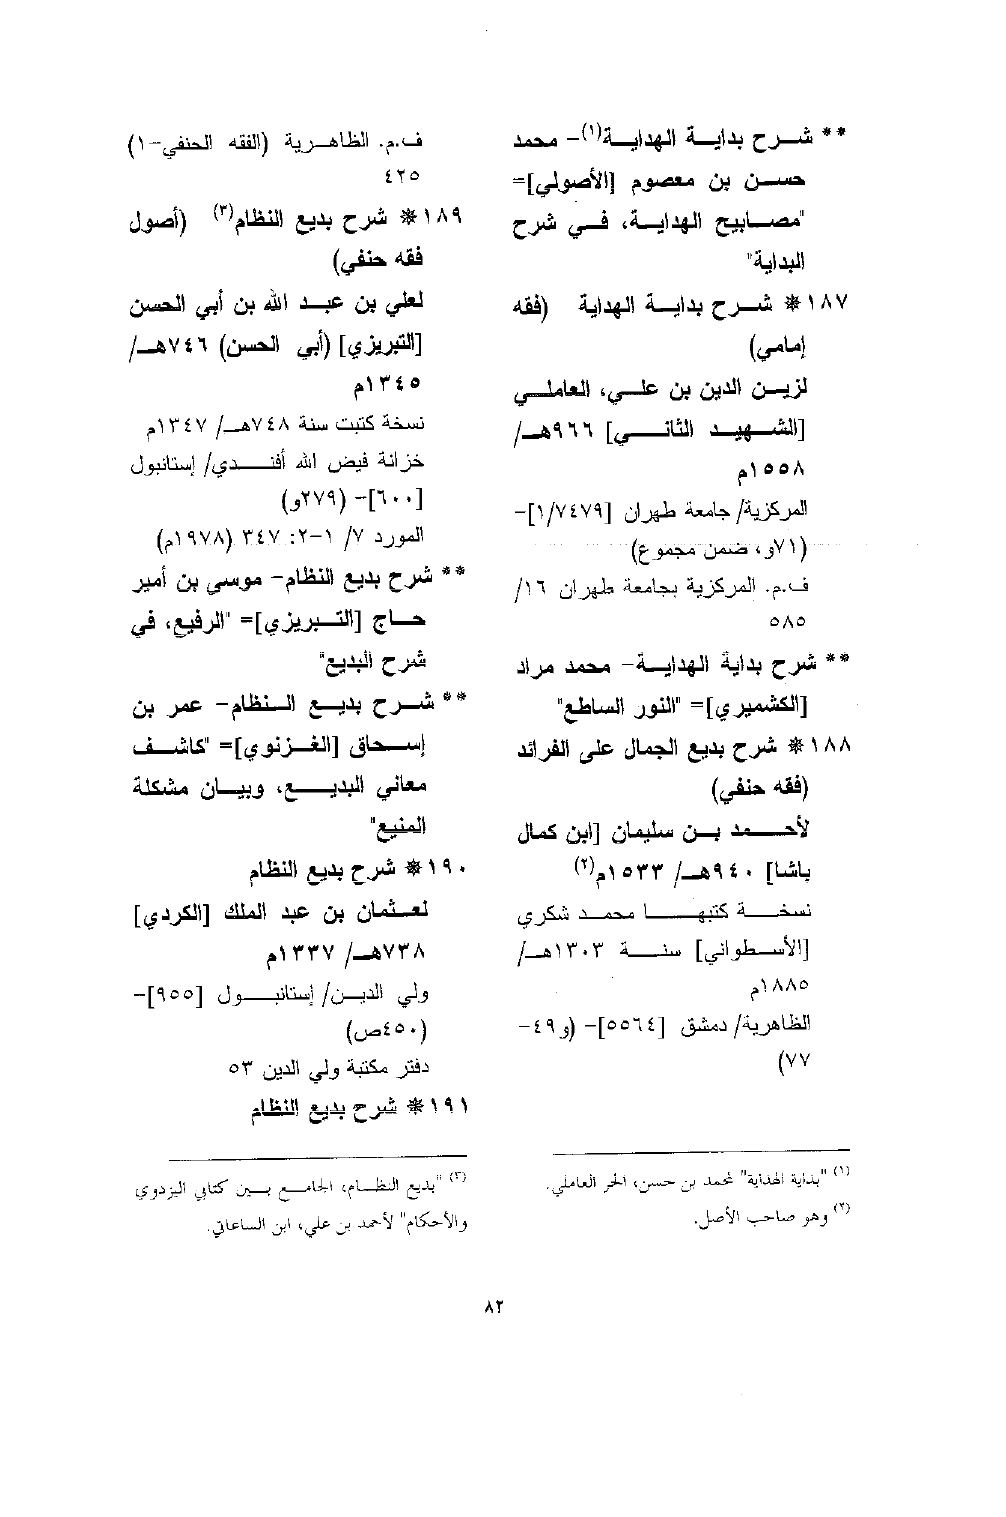 ** شرح بداية الهداية(١)- محمد
حسن بن معصوم [الأصولي]=
"مصابيح الهداية، في شرح
البداية"
١٨٧* شرح بداية الهداية (فقه
إمامي)
لزين الدين بن علي، العاملي
[الشهيد الثاني] ٩٦٦هـ/
١٥٥٨م
المركزية/ جامعة طهران [١/٧٤٧٩]-
(٧١و، ضمن مجموع)
ف.م. المركزية بجامعة طهران ١٦/
٥٨٥
** شرح بداية الهداية- محمد مراد
[الكشميري]= "النور الساطع"
١٨٨* شرح بديع الجمال على الفرائد
(فقه حنفي)
لأحمد بن سليمان [ابن كمال
باشا] ٩٤٠هـ/ ١٥٣٣م(٢)
نسخة كتبها محمد شكري
[الأسطواني] سنة ١٣٠٣هـ/
١٨٨٥م
الظاهرية/ دمشق [٥٥٦٤]- (و٤٩-
٧٧)
(١) "بداية الهداية" لمحمد بن حسن، الحر العاملي.
(٢) وهو صاحب الأصل.
ف.م. الظاهرية (الفقه الحنفي-١)
٤٢٥
١٨٩* شرح بديع النظام(٣) (أصول
فقه حنفي)
لعلي بن عبد الله بن أبي الحسن
[التبريزي] (أبي الحسن) ٧٤٦هـ/
١٣٤٥م
نسخة كتبت سنة ٧٤٨هـ/ ١٣٤٧م
خزانة فيض الله أفندي/ إستانبول
[٦٠٠]- (٢٧٩و)
المورد ٧/ ١-٢: ٣٤٧ (١٩٧٨م)
** شرح بديع النظام- موسى بن أمير
حاج [التبريزي]= "الرفيع، في
شرح البديع"
** شرح بديع النظام- عمر بن
إسحاق [الغزنوي]= "كاشف
معاني البديع، وبيان مشكلة
المنيع"
١٩٠* شرح بديع النظام
لعثمان بن عبد الملك [الكردي]
٧٣٨هـ/ ١٣٣٧م
ولي الدين/ إستانبول [٩٥٥]-
(٤٥٠ص)
دفتر مكتبة ولي الدين ٥٣
١٩١* شرح بديع النظام
(٣) "بديع النظام، الجامع بين كتابي البزدوي
والأحكام" لأحمد بن علي، ابن الساعاتي.
٨٢